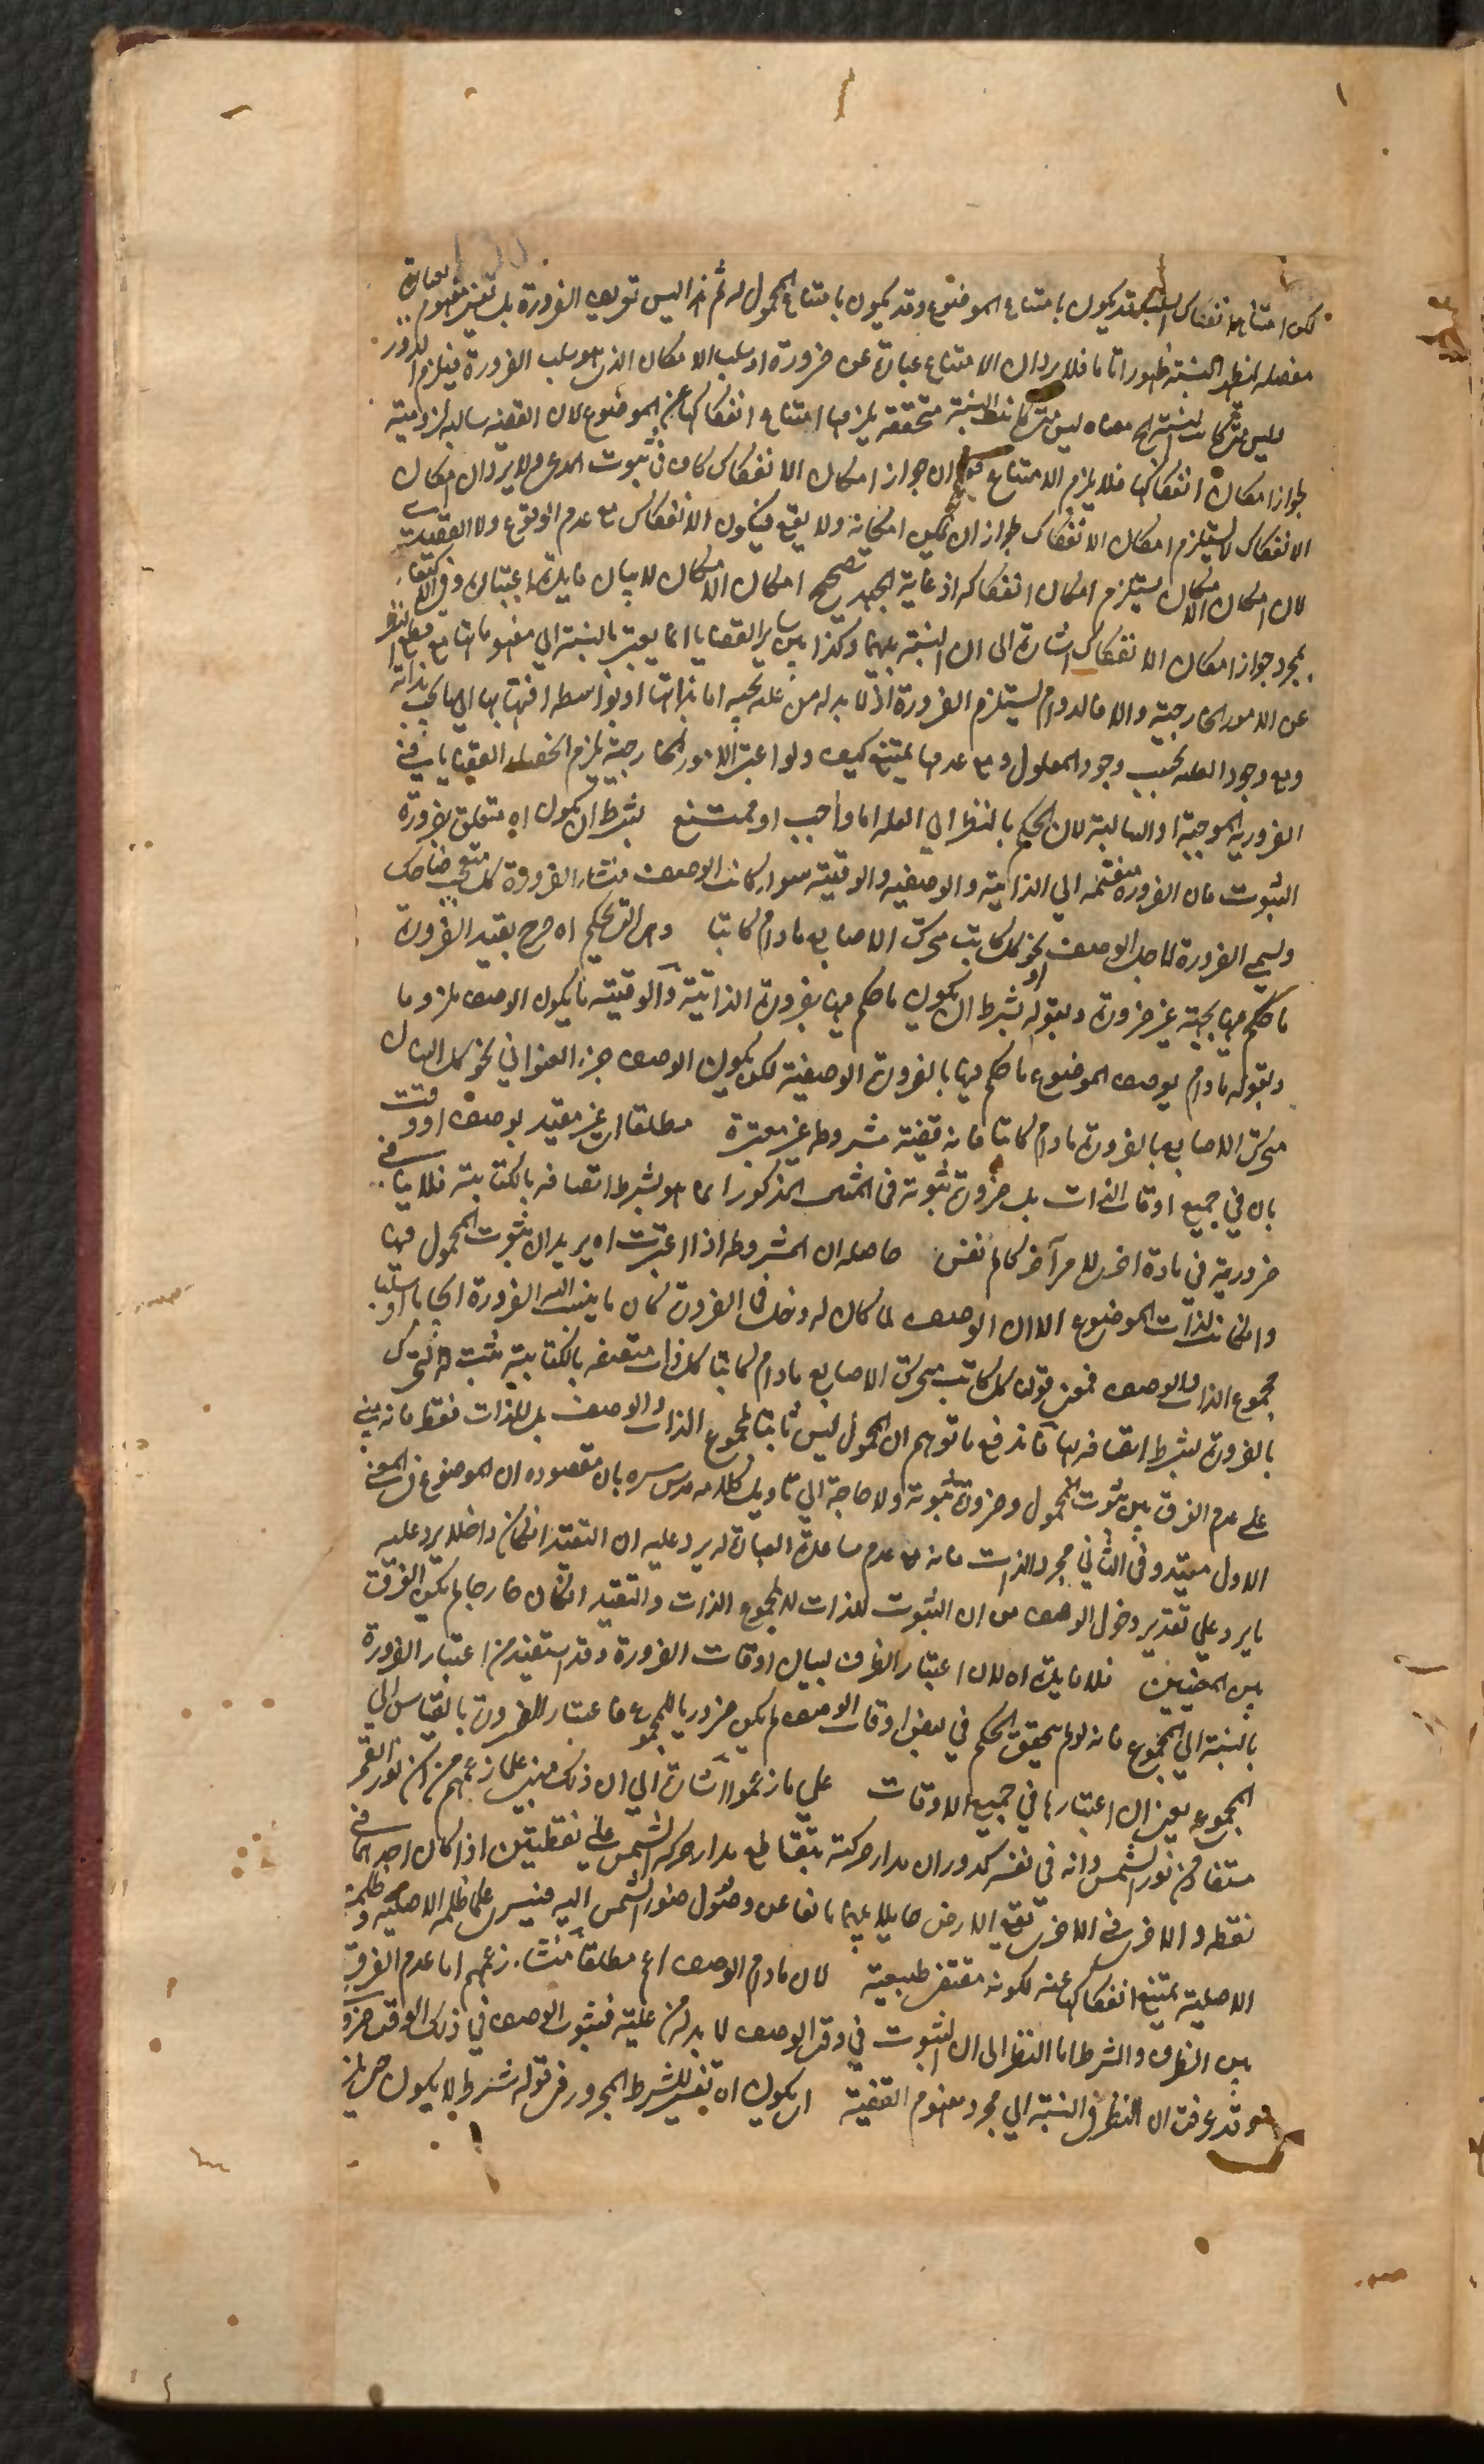 لكن امتناع انفكاك النسبة قد يكون بامتناع الموضوع وقد يكون بامتناع المحمول له ثم هذا ليس تعريف الضرورة بل تفسير مفهوم بعبارة
مفصله ليظهر النسبة ظهورا تاما فلا يرد ان الامتناع عبارة عن ضرورة او سلب الامكان الذى هو سلب الضرورة فيلزم الدور
وليس متى كانت النسبة الخ معناه ليس متى كانت النسبة متحققة يلزمها امتناع انفكاكها عن الموضوع لان القضية سالبة لزومية
لجواز امكان انفكاكها فلا يلزم الامتناع ان جواز امكان الانفكاك كاف فى ثبوت المدعى ولا يرد ان امكان
الانفكاك لا يستلزم امكان الانفكاك لجواز ان يكون امكانه ولا يقع فيكون الانفكاك مع عدم الوقوع
لان امكان الامكان يستلزم امكان انفكاكه اذ غاية الجهد تصحيح امكان الامكان لا بيان فايدة اعتباره وفى الاكتفاء
بمجرد جواز امكان الانفكاك اشارة الى ان النسبة بينهما وكذا بين ساير القضايا انما يعتبر بالنسبة الى مفهوماتها مع قطع النظر
عن الامور الخارجية والا فالدوام يستلزم الضرورة اذ لا بد له من علة تجبه اما بذاتها او بواسطه انتهائها الى ما يجب بذاته
ومع وجود العله يجب وجود المعلول ومع عدمها يمتنع كيف ولو اعتبر الامور الخارجية يلزم انحصار القضايا فى
الضرورية الموجبة او السالبة لان الحكم بالنظر الى العله اما واجب او ممتنع بشرط ان يكون اه متعلق بضرورة
الثبوت فان الضرورة منقسمة الى الذاتية والوصفية والوقتية سواء كانت الوصف منشاء الضرورة كل متعجب ضاحك
ويسمى الضرورة لاجل الوصف او نحو كل كاتب متحرك الاصابع مادام كاتبا وهى التى حكم اه خرج بقيد الضرورة
ما حكم فيها بجهة غير ضرورة وبقوله بشرط ان يكون ما حكم فيها بضرورة الذاتية والوقتية ما يكون الوصف ملزوما
وبقوله مادام بوصف الموضوع ما حكم فيها بالضرورة الوصفية لكن يكون الوصف جزء العنوانى نحو كل انسان
متحرك الاصابع بالضرورة مادام كاتبا فانه قضية مشروطه غير معتبرة مطلقا اى غير مقيد بوصف او وقت
بان فى جميع اوقات الذات بل ضرورة ثبوته فى المثال المذكور انما هو بشرط اتصافه بالكتابة فلا ينافى
ضرورية فى مادة اخرى للامر آخر كالتنفس حاصله ان المشروطه اذا اعتبرت اه يريد ان ثبوت المحمول فيها
وان كانت لذات الموضوع الا ان الوصف لما كان له دخل فى الضرورة كان ما ينسب اليه الضرورة ايجابا او سلبا
مجموع الذات والوصف فمعنى قولنا كل كاتب متحرك الاصابع مادام كاتبا كل ذات متصفه بالكتابة ثبت له التحرك
بالضرورة بشرط اتصافه بها فاندفع ما توهم ان المحمول ليس ثابتا لمجموع الذات والوصف بل للذات فقط فانه مبنى
على عدم الفرق بين ثبوت المحمول وضرورة ثبوته ولا حاجة الى تاويل كلامه قدس سره بان مقصوده ان الموضوع فى المعنى
الاول مقيد وفى الثانى مجرد الذات فانه مع عدم مساعدة العبارة له يرد عليه ان التقييد ان كان داخلا يرد عليه
ما يرد على تقدير دخول الوصف من ان الثبوت للذات لا لمجموع الذات والتقييد ان كان خارجا لم يكن الفرق
بين المعنيين فلا فايدة اه لان اعتبار الظرف لبيان اوقات الضرورة وقد استفيد من اعتبار الضرورة
بالنسبة الى المجموع فانه لو لم يتحقق الحكم فى بعض اوقات الوصف لم يكن ضروريا للمجموع فاعتبار الضرورة بالقياس الى
المجموع يغنى ان اعتبارها فى جميع الاوقات على ما زعموا اشارة الى ان ذلك مبنى على ما زعمهم من ان نور القمر
مستفاد من نور الشمس وانه فى نفسه كدر وان مدار حركته يتقاطع مدار حركة الشمس على نقطتين اذا كان احدهما فى
نقطه والاخرى فى الاخرى تقع الارض حايلا بينهما مانعا عن وصول ضوء الشمس اليه فيسرى على ظلمة الاصلية وظلمة
الاصلية يمتنع انفكاكها عنه لكونه مقتضى طبيعته لان مادام الوصف اع مطلقا منشاء زعمهم اما عدم الفرق
بين الظرف والشرط اما النظر الى ان الثبوت فى وقت الوصف لا بد له من علة فثبوت الوصف فى ذلك الوقت ضرورى
وقد عرفت ان النظر فى النسبة الى مجرد مفهوم القضية اى يكون اه تفسير للشرط المجرور فى قوله بشرط لا يكون حتى يلزم